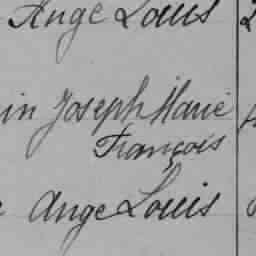 Ange Louis
in Joseph Marie
François
Ange Louis